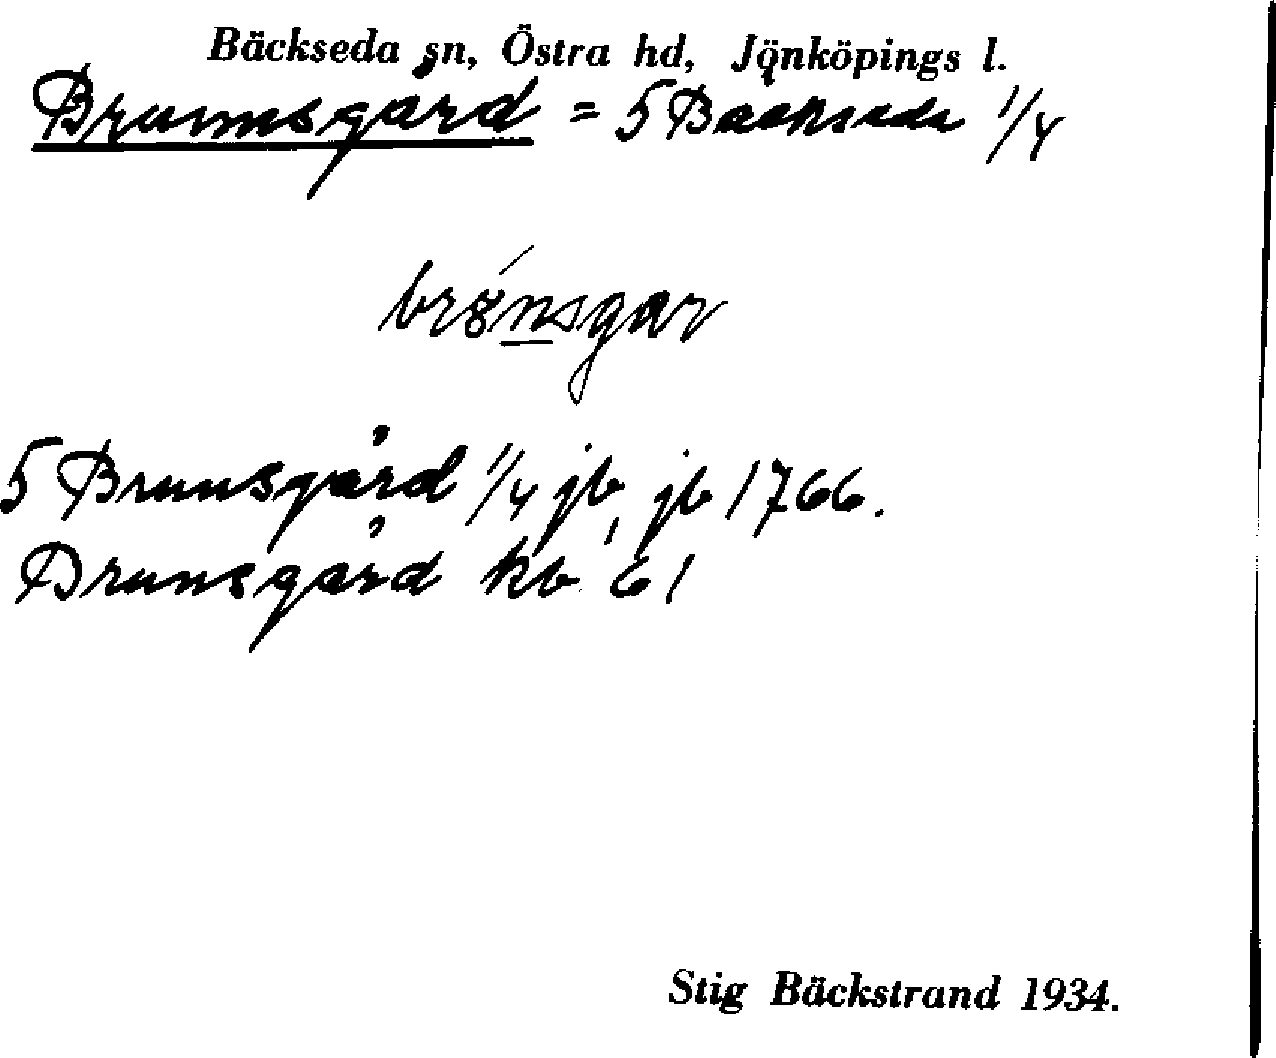 Bäckseda sn, Östra hd, Jönköpings l.
Brunnsgård = 5 Bäckseda 1/4
5 Brunsgård 1/4 jb, jb 1766.
Brunsgård kb 61
Stig Bäckstrand 1934.